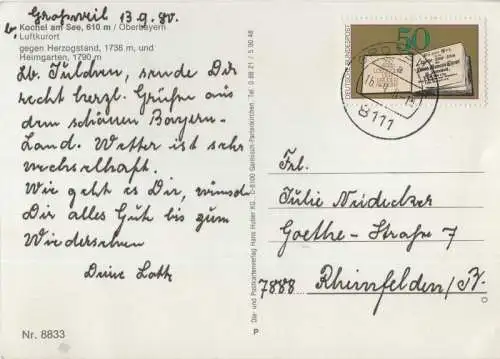 Großweil 13.9.80.
b.
Kochel am See, 610 m / Oberbayern
Luftkurort
gegen Herzogstand, 1736 m, und
Heimgarten, 1790 m
Lb. Julchen, sende Dir
recht herzl. Grüße aus
dem schönen Bayern-
Land. Wetter ist sehr
wechselhaft.
Wie geht es Dir, wünsch
Dir alles Gute bis zum
Wiedersehen
Deine
Nr. 8833
Die- und Postkartenverlag Hans Huber KG, D-8100 Garmisch-Partenkirchen, Tel. 0 88 21 / 5 90 48
P
DEUTSCHE BUNDESPOST
50
8111
Frl.
Julie Neidecker
Goethe-Straße 7
7888 Rheinfelden/B.